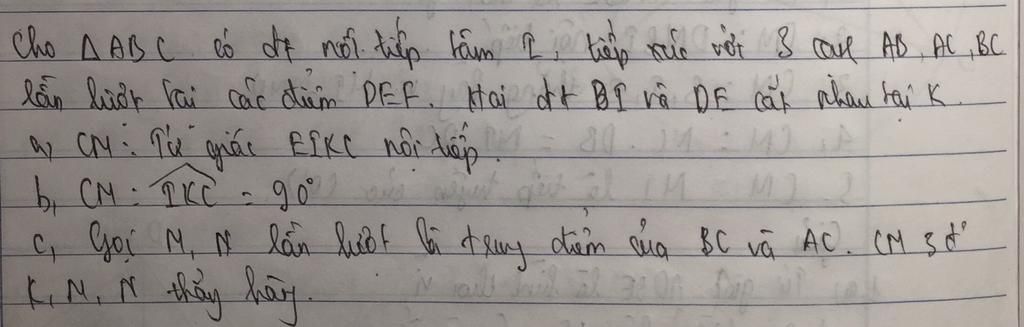 Cho △ABC có đt nội tiếp tâm I, tiếp xúc với 3 cạnh AB, AC, BC
lần lượt tại các điểm DEF. Hai đt BI và DE cắt nhau tại K.
a, CM: Tứ giác EIKC nội tiếp.
b, CM: \widehat{IKC} = 90°
c, Gọi M, N lần lượt là trung điểm của BC và AC. CM 3 đ'
K, M, N thẳng hàng.